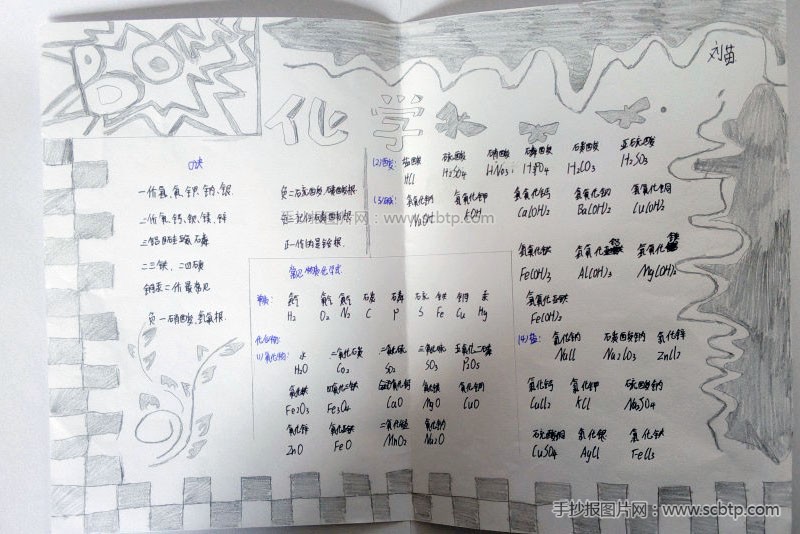 刘苗
化学
口诀
一价氢、氯、钾、钠、银
二价氧、钙、钡、镁、锌
三铝四硅五磷
二三铁、二四碳
铜汞二价最常见
负一硝酸、氢氧根
负二硫酸、碳酸根
负三记住磷酸根
正一价的是铵根
常见物质化学式
单质:
氢气 氧气 氮气 碳 磷 硫 铁 铜 汞
H₂ O₂ N₂ C P S Fe Cu Hg
化合物:
(1)氧化物: 水 二氧化碳 二氧化硫 三氧化硫 五氧化二磷
H₂O Co₂ So₂ SO₃ P₂O₅
氧化铁 四氧化三铁 氧化钙 氧化镁 氧化铜
Fe₂O₃ Fe₃O₄ CaO MgO CuO
氧化锌 氧化亚铁 二氧化锰 氧化钠
ZnO FeO MnO₂ Na₂O
(2)酸: 盐酸 硫酸 硝酸 磷酸 碳酸 亚硫酸
HCl H₂SO₄ HNO₃ H₃PO₄ H₂CO₃ H₂SO₃
(3)碱: 氢氧化钠 氢氧化钾 氢氧化钙 氢氧化钡 氢氧化铜
NaOH KOH Ca(OH)₂ Ba(OH)₂ Cu(OH)₂
氢氧化铁 氢氧化铝 氢氧化镁
Fe(OH)₃ Al(OH)₃ Mg(OH)₂
氢氧化亚铁
Fe(OH)₂
(4)盐: 氯化钠 碳酸钠 氯化锌
NaCl Na₂CO₃ ZnCl₂
氯化钙 氯化钾 硫酸钠
CuCl₂ KCl Na₂SO₄
硫酸铜 氯化银 氯化铁
CuSO₄ AgCl FeCl₃
手抄报图片网:www.scbtp.com
手抄报图片网:www.scbtp.com